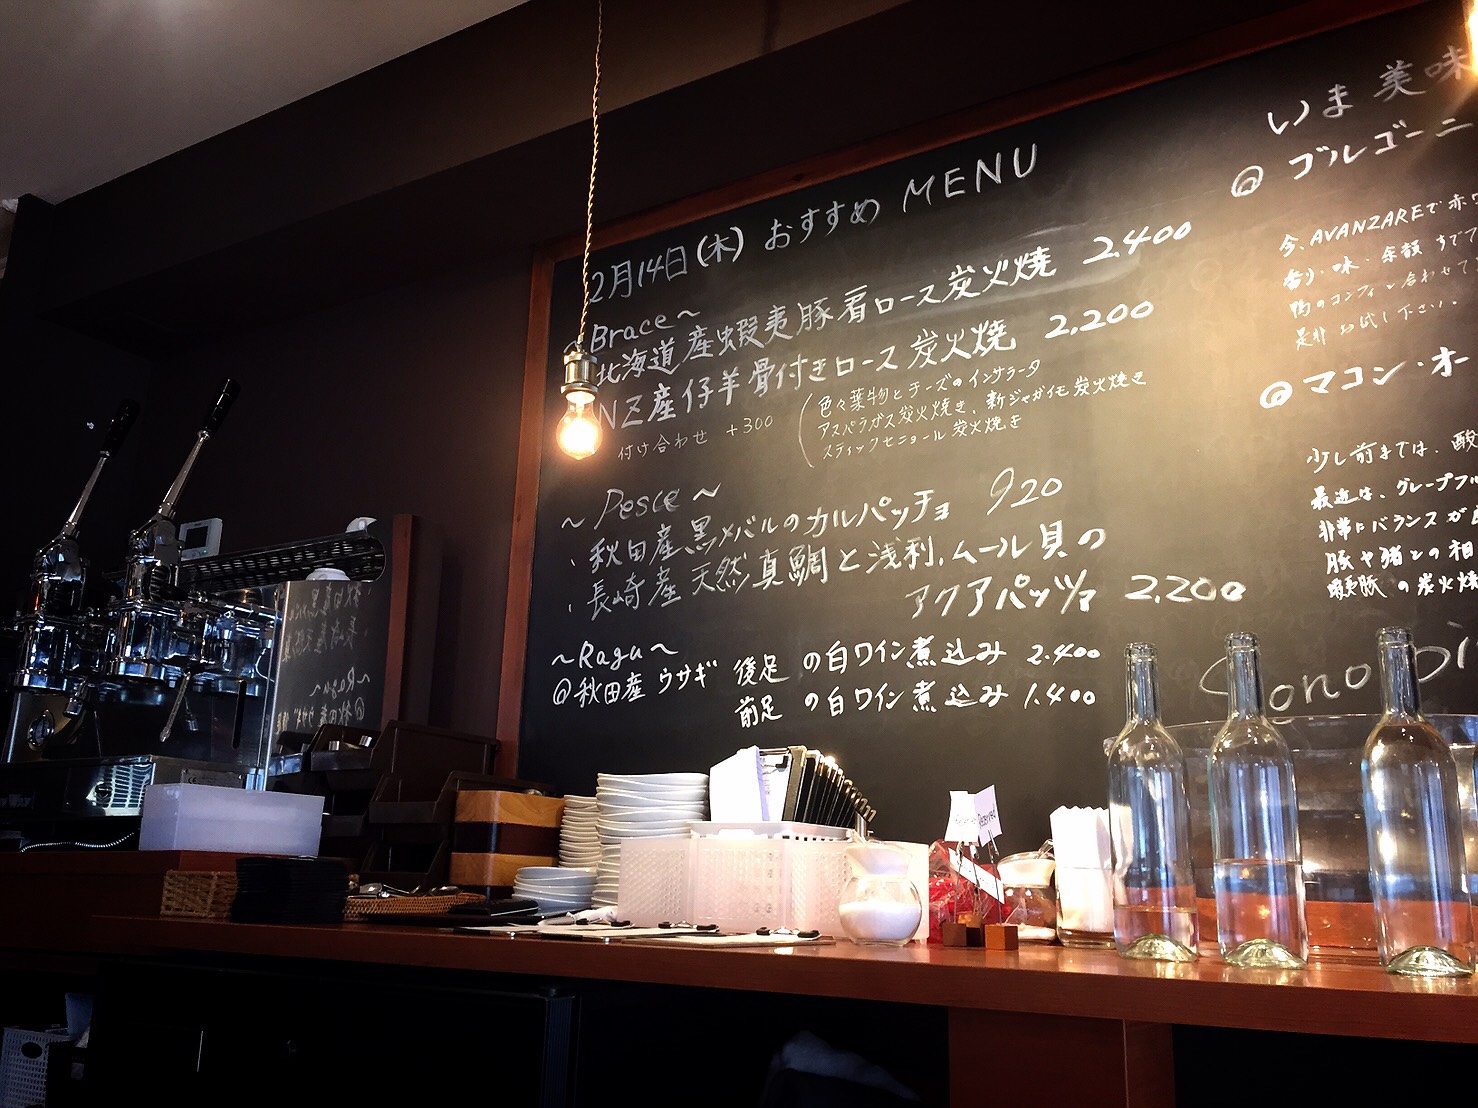 2月14日(木) おすすめ MENU
Brace～
北海道産蝦夷豚肩ロース炭火焼 2,400
NZ産仔羊骨付きロース炭火焼 2,200
付け合わせ +300
色々葉物とチーズのインサラータ
アスパラガス炭火焼き、新ジャガイモ炭火焼き
スティックセニョール炭火焼き
～Pesce～
・秋田産黒メバルのカルパッチョ 920
・長崎産天然真鯛と浅利、ムール貝の
アクアパッツァ 2,200
～Ragu～
@秋田産ウサギ 後足 の白ワイン煮込み 2,400
前足 の白ワイン煮込み 1,400
いま美味
@ ゴルゴーニ
今、AVANZAREで赤ワ
香り・味・余韻 すで
鴨のコンフィと合わせて
是非お試し下さい。
@ マコン・オー
少し前までは、酸
最近は、グレープフル
非常にバランスが
豚や猪との相
蝦夷豚の炭火焼
Reserved